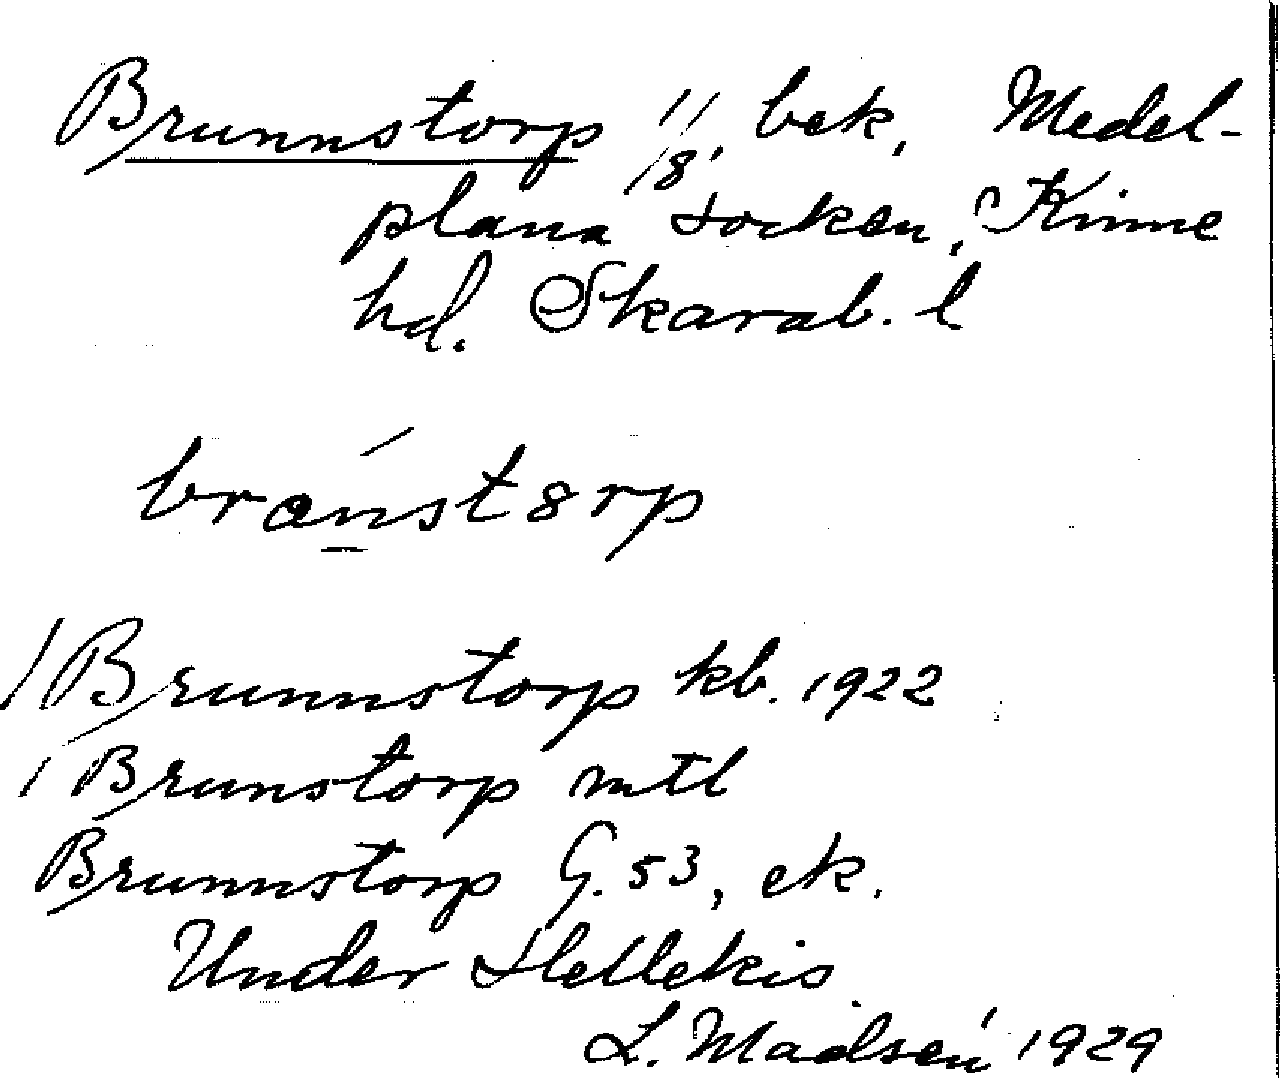 Brunnstorp 1/8, bek, Medel-
plana socken, Kinne
hd. Skarab. l
branstorp
/ Brunnstorp kb. 1922
/ Brunstorp mtl
Brunnstorp G. 53, ek.
Under Hellekis
L. Madsén 1929